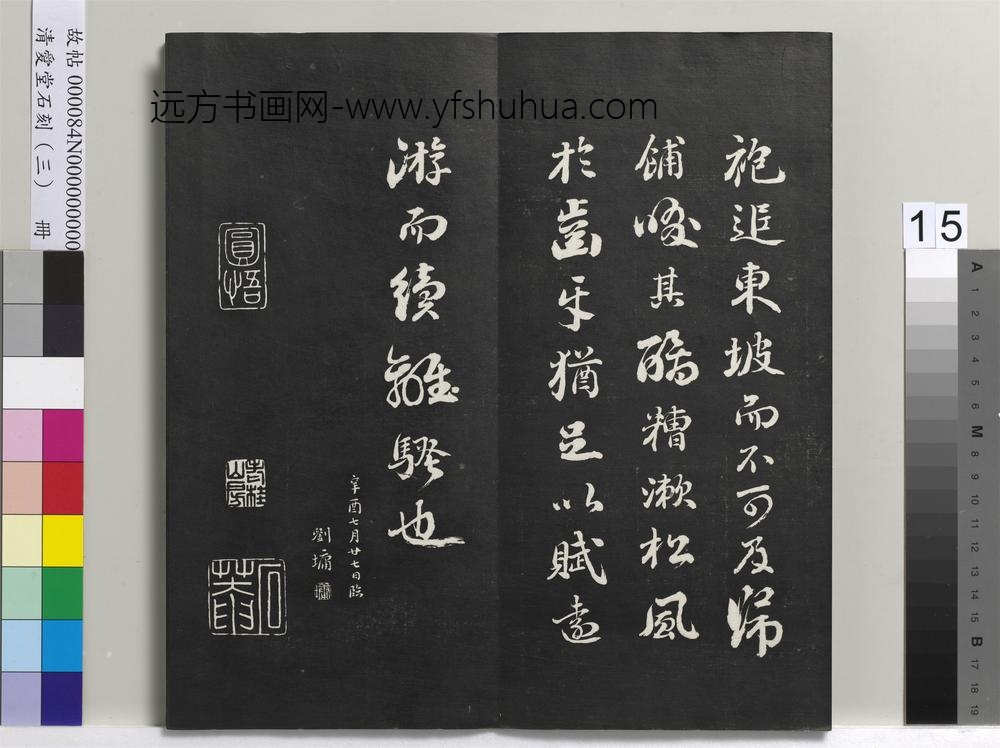 袍追東坡而不可及歸
餔啜其醨糟漱松風
於齒牙猶足以賦遠
游而續離騷也
辛酉七月廿七日臨
劉墉
圓悟
石菴
远方书画网-www.yfshuhua.com
故帖 0000084N000000000
清愛堂石刻（三） 冊
15
A
1
2
3
4
5
6
M
8
9
10
11
12
13
14
15
B
17
18
19